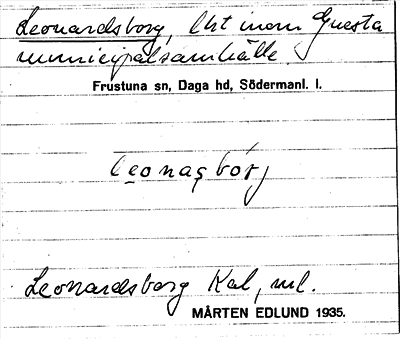 Leonardsborg, lht inom Gnesta
municipalsamhälle.
Frustuna sn, Daga hd, Södermanl. l.
Leonardsborg Kal, ml.
MÅRTEN EDLUND 1935.